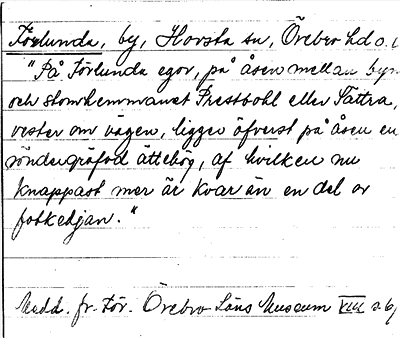 Förlunda, by, Hovsta sn, Örebro hd o. l
"På Förlunda egor, på åsen mellan byn
och stomhemmanet Prestbohl eller Tättra,
vester om vägen, ligger öfverst på åsen en
söndergräfod ättehög, af hvilken nu
knappast mer är kvar än en del av
fotkedjan."
Medd. fr. För. Örebro Läns Museum VIII s. 6